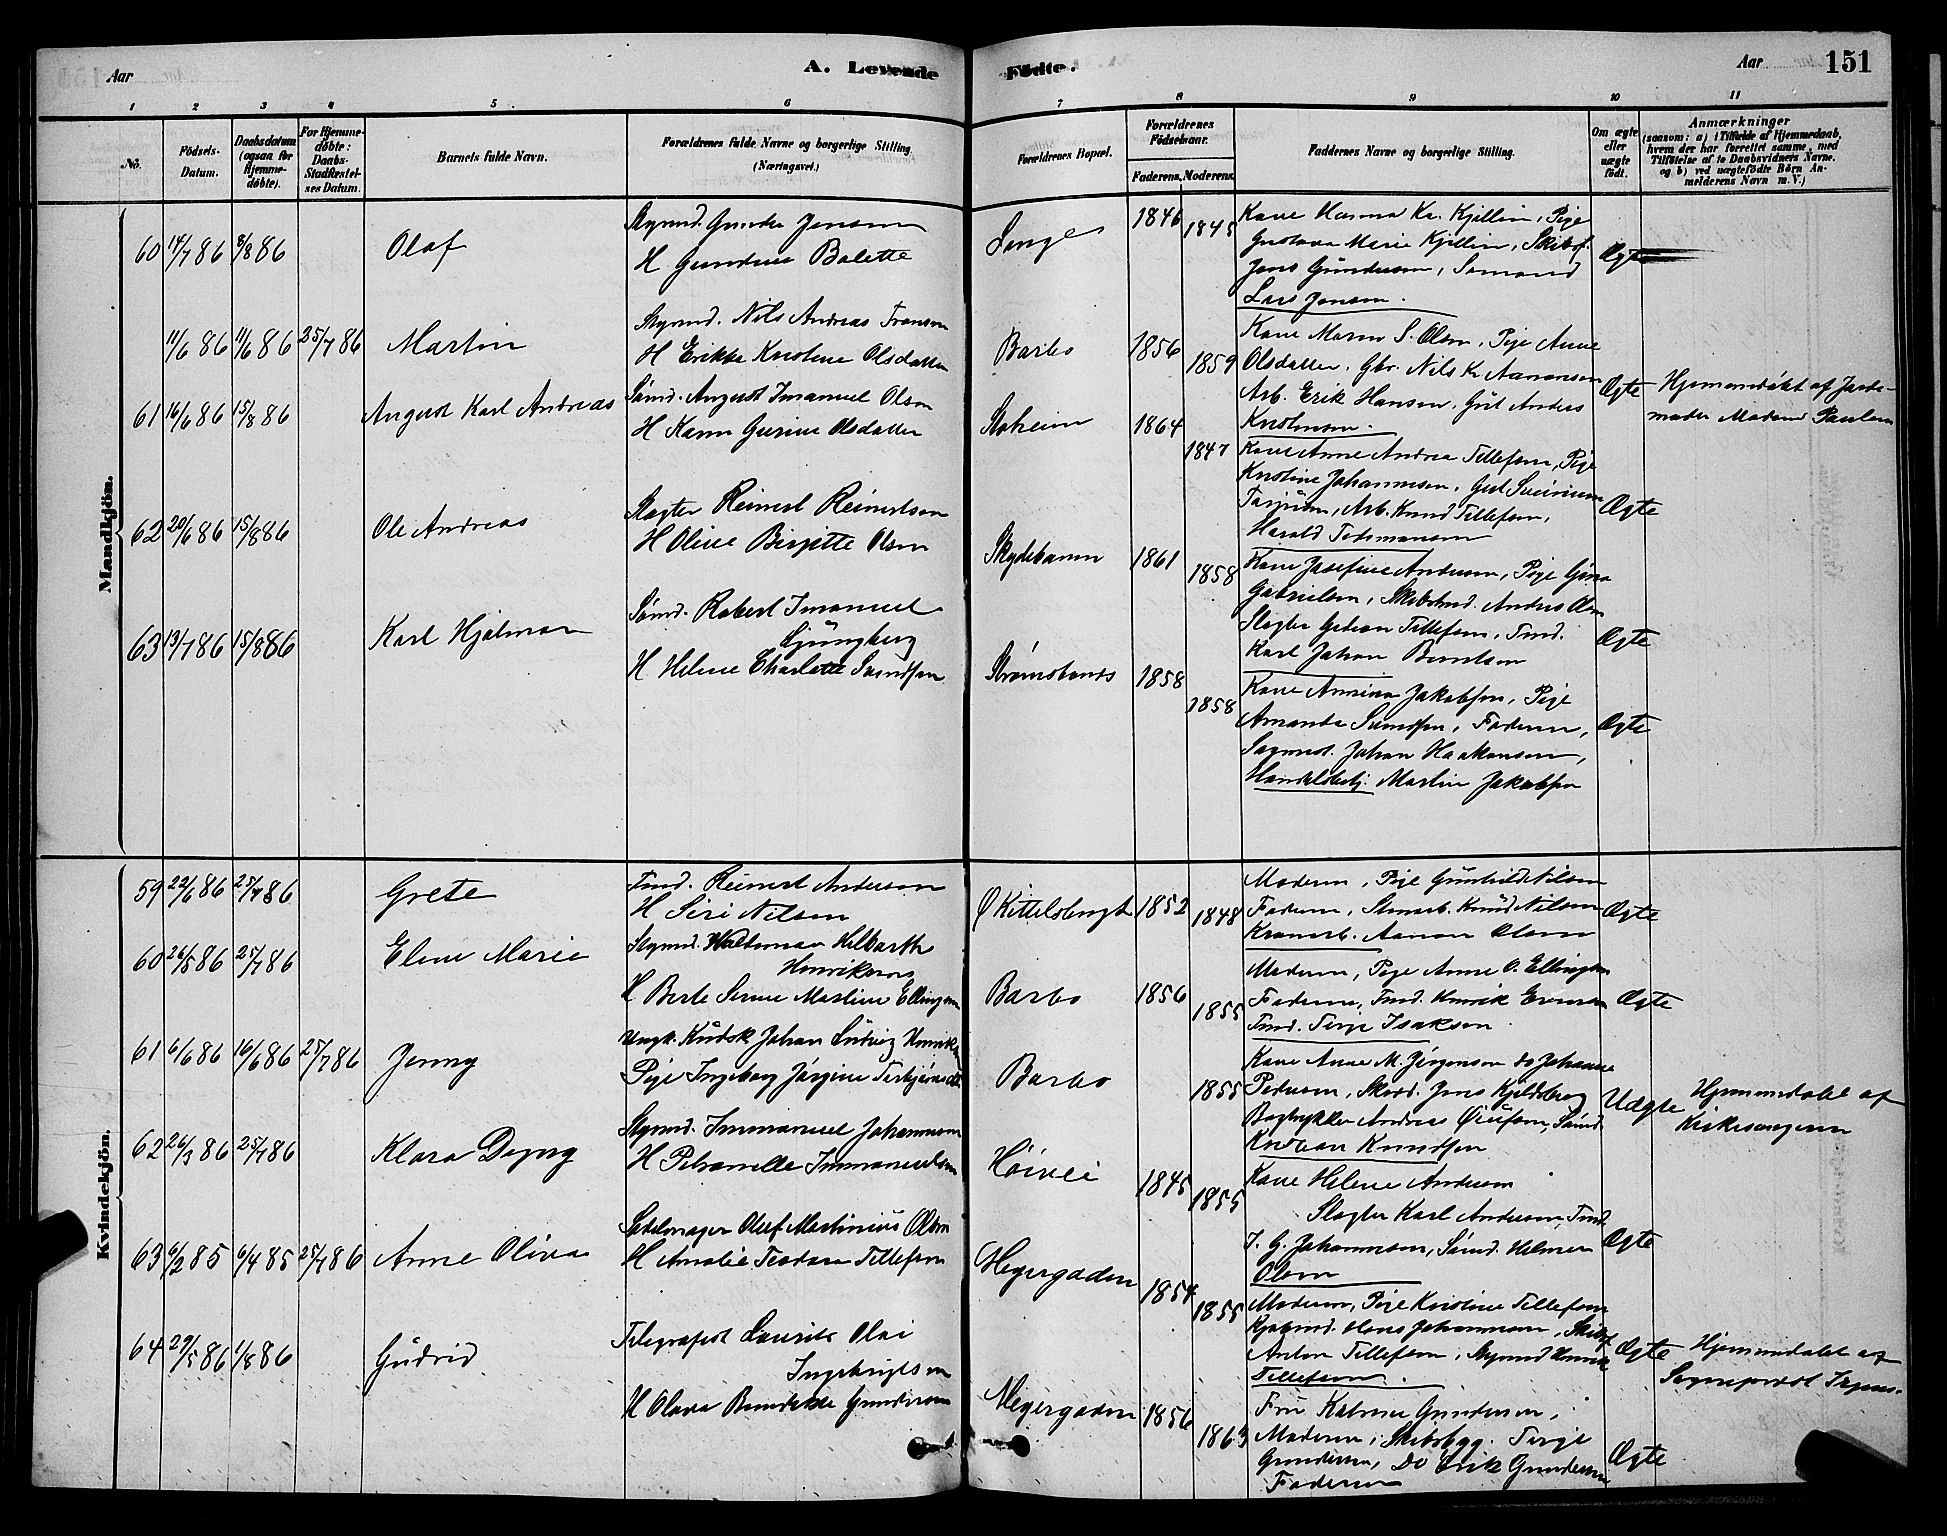 Aar
A. Levende Fødte.
Aar 151
1 2 3 4 5 6 7 8 9 10 11
No.
Fødsels-Datum.
Daabsdatum (ogsaa for Hjemme-døbte).
For Hjemme-døbte: Daabs-Stadfæstel-ses Datum.
Barnets fulde Navn.
Forældrenes fulde Navne og borgerlige Stilling.
(Næringsvei.)
Forældrenes Bopæl.
Forældrenes Fødselsaar.
Faderens. Moderens.
Faddernes Navne og borgerlige Stilling.
Om ægte eller uægte født.
Anmærkninger
(saasom: a) i Tilfælde af Hjemmedaab, hvem der har forrettet samme, med Tilføielse af to Daabsvidners Navne, og b) ved uægtefødte Børn Anmelderens Navn m. V.)
Mandkjøn.
60 14/7 86 8/8 86 Olaf
H Gundine Bolette
1846 1845
Gustava Marie Kjellin, Skibsf.
Jens Gundersen, Sømand
Lars Jensen.
Ægte
11/6 86 11/6 86 25/7 86 Martin
Nils Andreas
H Erikke Kristine Olsdatter
Barbo 1856 1859
Kone Maren S. Olsen, Pige Anne
Olsdatter, Gbr. Nils K. Aanonsen
Arb. Erik Hansen, Gut Anders
Knutsen.
Ægte
Hjemmedøbt af Jorde-
moder Madam Paulsen
61 16/6 86 15/8 86 August Karl Andreas
Sømd. August Imanuel Olsen
H Karen Gurine Olsdatter
1864 1847
Kone Anne Andrea Tellefsen, Pige
Kristine Johannesen, Gut
Arb. Knud Tellefsen,
Harald
Ægte
62 20/6 86 15/8 86 Ole Andreas
Slagter Reinert Reinertsen
H Oline Birgitte Olsen
Skydebanen 1861 1858
Kone Josefine Andersen, Pige Gina
Gabrielsen, Andreas Olsen
Slagter Gedion Tellefsen, Tmd.
Karl Johan Berntsen
Ægte
63 13/7 86 15/8 86 Karl Hjalmar
Sømd. Robert Imanuel
Ljungberg
H Helene Charlotte Svendsen
Strømsbunds 1858 1858
Kone Annina Jakobsen, Pige
Amanda Svendsen, Faderen,
Johan Haakensen,
Handelsbetj. Martin Jakobsen
Ægte
Kvindekjøn.
59 22/6 86 25/7 86 Grete
Tmd. Reinert Andersen
H Siri Nilsen
Ø Kittelsbugt 1852 1848
Moderen, Pige Gunhild Nilsen
Faderen, Stenarb. Knud Nilsen
Aanon Olsen
Ægte
60 26/5 86 25/7 86 Elene Marie
Henriksen
H Berte Serine Martine Ellingsen
Barbo 1856 1855
Moderen, Pige Anne O. Ellingsen
Faderen, Tmd. Henrik
Tmd. Terje Isaksen.
Ægte
61 6/6 86 16/6 86 25/7 86 Jenny
Ungk. Kudsk Johan Ludvig Henriksen
Pige Ingeborg Jørgine Terkjersdt.
Barbo 1855
Kone Anne M. Jørgensen do Johanne
Pedersen, Jens Kjeldsberg
Bogtrykker Andreas Sømd.
Kristian Knudsen
Uægte
Hjemmedøbt af
Kirkesangeren
62 26/3 86 25/7 86 Klara Dagny
Immanuel Johannesen
H Petronelle Immanuelsen
Høivei 1845 1855
Kone Helene Andersen
Slagter Karl Andersen, Tmd.
J. G. Johannesen, Sømd. Helmer
Olsen
Ægte
63 6/2 85 6/4 85 25/7 86 Anne Oliva
Sadelmager Oluf Martinius Olsen
H Amalie Teodora Tellefsen
Heyergaden 1854 1855
Moderen, Pige Kristine Tellefsen
Kjøbmd. Hans Johannesen, Skibsf.
Anton Tellefsen, Styrmd Henrik
Tellefsen.
Ægte
Hjemmedøbt af
Sogneprest
64 29/5 86 1/8 86 Gudrid
Telegrafist Laurits Olai
Ingebrigtsen
H Olava Benedikte Gundersen
Heyergaden 1856 1863
Fru Katrine Gundersen,
Moderen, Skibsbyg. Terje
Gundersen, Do Erik Gundersen
Faderen
Ægte